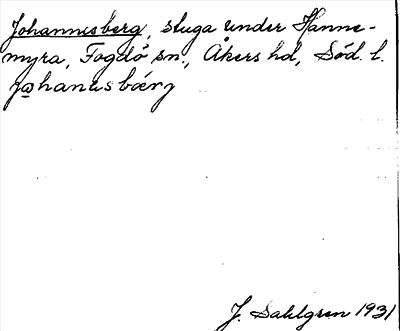 Johannesberg, stuga under Hanne-
myra, Fogdö sn., Åkers hd, Söd. l.
johanesbærj
J. Sahlgren 1931